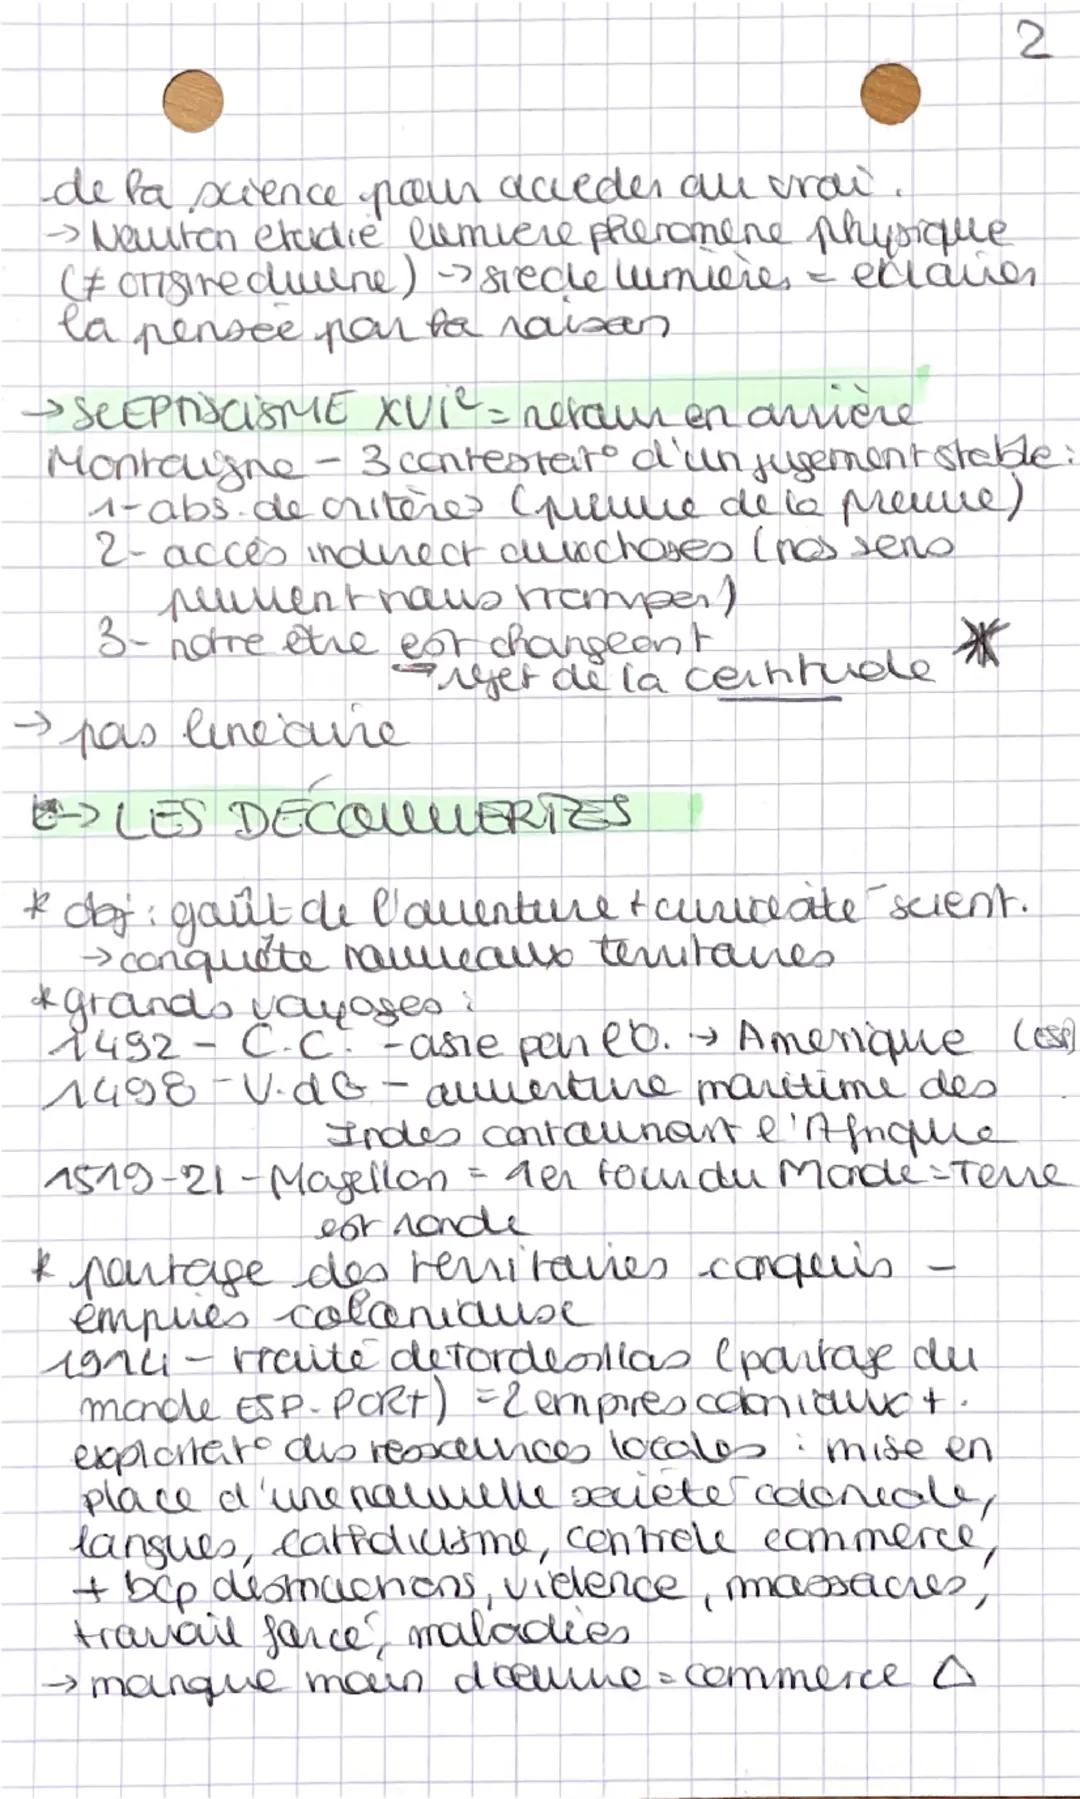 2
de la science pour acceder au vrai.
→ Newton etudie lumiere phenomene physique
(≠ origine divine) → siecle lumières = eclairer
la pensée par la raison
→ SCEPTISCISME XVIᵉ = retour en arrière
Montaigne - 3 contestat° d'un jugement stable :
1- abs. de critères (preuve de la preuve)
2- accès indirect aux choses (nos sens
peuvent nous tromper)
3- notre être est changeant
→ rejet de la certitude *
→ pas linéaire
→ LES DÉCOUVERTES
* obj : goût de l'aventure + curiosité scient.
→ conquête nouveaux territoires
* grands voyages :
1492 - C.C. - asie par l'O. → Amerique (esp)
1498 - V.dG - ouverture maritime des
Indes contournant l'Afrique
1519-21 - Magellan = 1er tour du Monde = Terre
est ronde
* partage des territoires conquis -
empires coloniaux
1914 - traité de Tordesillas (partage du
monde ESP-PORT) = 2 empires coloniaux +.
exploitat° des ressources locales : mise en
place d'une nouvelle société coloniale,
langues, catholicisme, controle commerce,
+ bcp désmachions, violence, massacres,
travail forcé, maladies
→ manque main d'oeuvre = commerce △